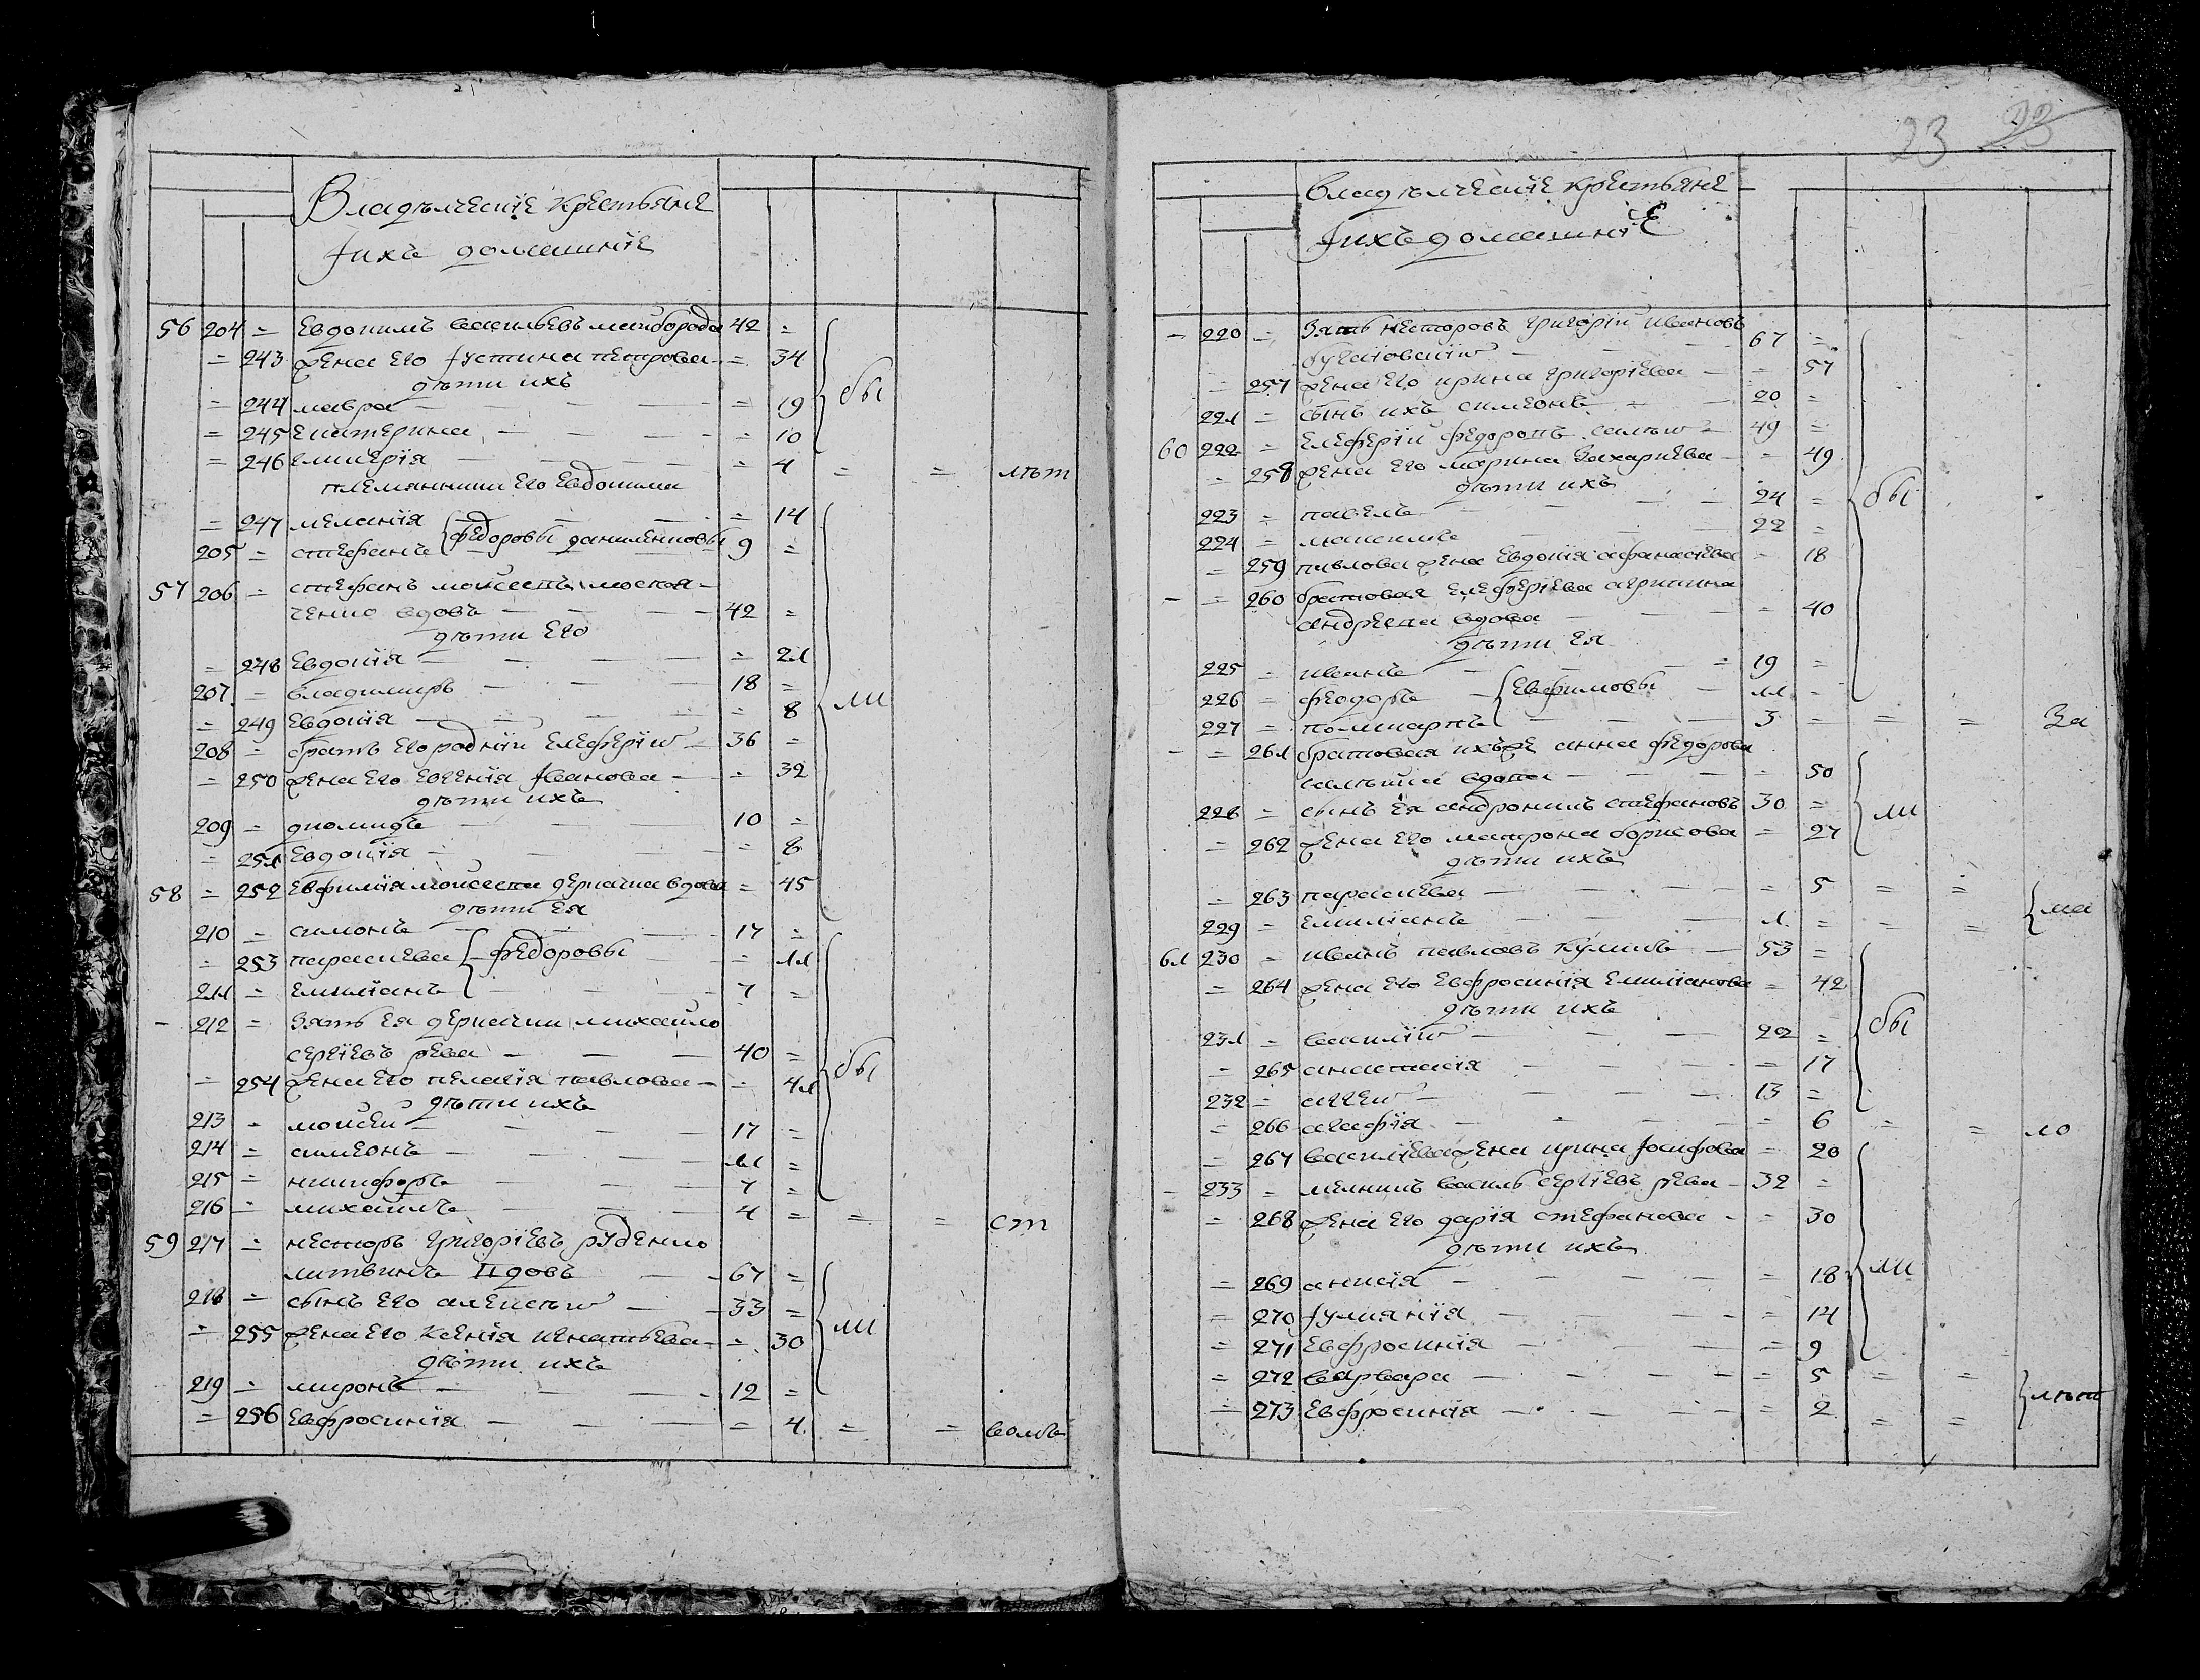 Владѣлческіе крестьяне
Іихъ домашніе
56 204 = Евдокимъ васильевъ майборода 42 =
= 243 жена его Іустина петрова = 34
дѣти ихъ
= 244 мавра = 19 бы
= 245 Екатерина = 10
= 246 гликерія = 4 = = лѣт
племянники Его Евдокима
= 247 меланія = 14
федоровы даниленковы
205 = стефанъ 9 =
57 206 = стефанъ моисеевъ москал-
ченко вдовъ 42 =
дѣти Его
= 248 Евдокія = 21
207 = владимиръ 18 =
ли
= 249 Евдокія = 8
208 = братъ его родній Елеферій 36 =
= 250 жена Его Евгенія Іванова = 32
дѣти ихъ
209 = диомидъ 10 =
= 251 Евдокія = 8
58 = 252 Евфимія моисеева деркачка вдова = 45
дѣти Ея
210 = симонъ 17 =
= 253 параскева федоровы = 11
211 = Емиліанъ 7 =
- 212 = Зять Ея деркачки михайло
сергіевъ рева 40 =
= 254 жена его пелагія павлова = 41 бы
дѣти ихъ
213 = мойсей 17 =
214 = симеонъ 11 =
215 = никифоръ 7 =
216 = михаилъ 4 = = = ст
59 217 = несторъ григоріевъ руденко
литвинъ вдовъ 67 =
218 = сынъ его алексѣй 33 =
ли
= 255 жена Его Ксенія игнатьева = 30
дѣти ихъ
219 = миронъ 12 =
= 256 Евфросинія = 4 = =
23
владѣлческіе крестьяне
Іихъ домашніе
- 220 = Зять несторовъ григорій ивановъ
67 =
= 257 жена Его ирина григоріева = 57
221 = сынъ ихъ симеонъ 20 =
60 222 = Елеферій федоровъ 49 =
= 258 жена Его марина Захаріева = 49
дѣти ихъ
бы
223 = павелъ 24 =
224 = максимъ 22 =
= 259 павлова жена Евдокія афанасіева = 18
- = 260 братовая Елеферіева агрипина
андреева вдова = 40
дѣти Ея
225 = иванъ 19 =
226 = феодоръ Евфимовы 11 =
227 = поликарпъ 3 = = = За
- = 261 братовая ихъже анна федорова
вдова = 50
228 = сынъ Ея андроникъ стефановъ 30 =
ли
= 262 жена Его матрона борисова = 27
дѣти ихъ
= 263 параскева = 5 = =
ма
229 = Емиліанъ 1 = = =
61 230 = иванъ павловъ Куликъ 53 =
= 264 жена Его Евфросинія Емиліанова = 42
дѣти ихъ
бы
231 = василій 22 =
= 265 анастасія = 17
232 = аггей 13 =
= 266 агафія = 6 = = ло
= 267 василіева жена ирина Іосифова = 20
- 233 = мелникъ василь сергіевъ рева 32 =
= 268 жена Его дарія стефанова = 30
дѣти ихъ
= 269 анисія = 18 ли
= 270 Іулианія = 14
= 271 Евфросинія = 9
= 272 варвара = 5 = =
лѣт
= 273 Евфросинія = 2 = =